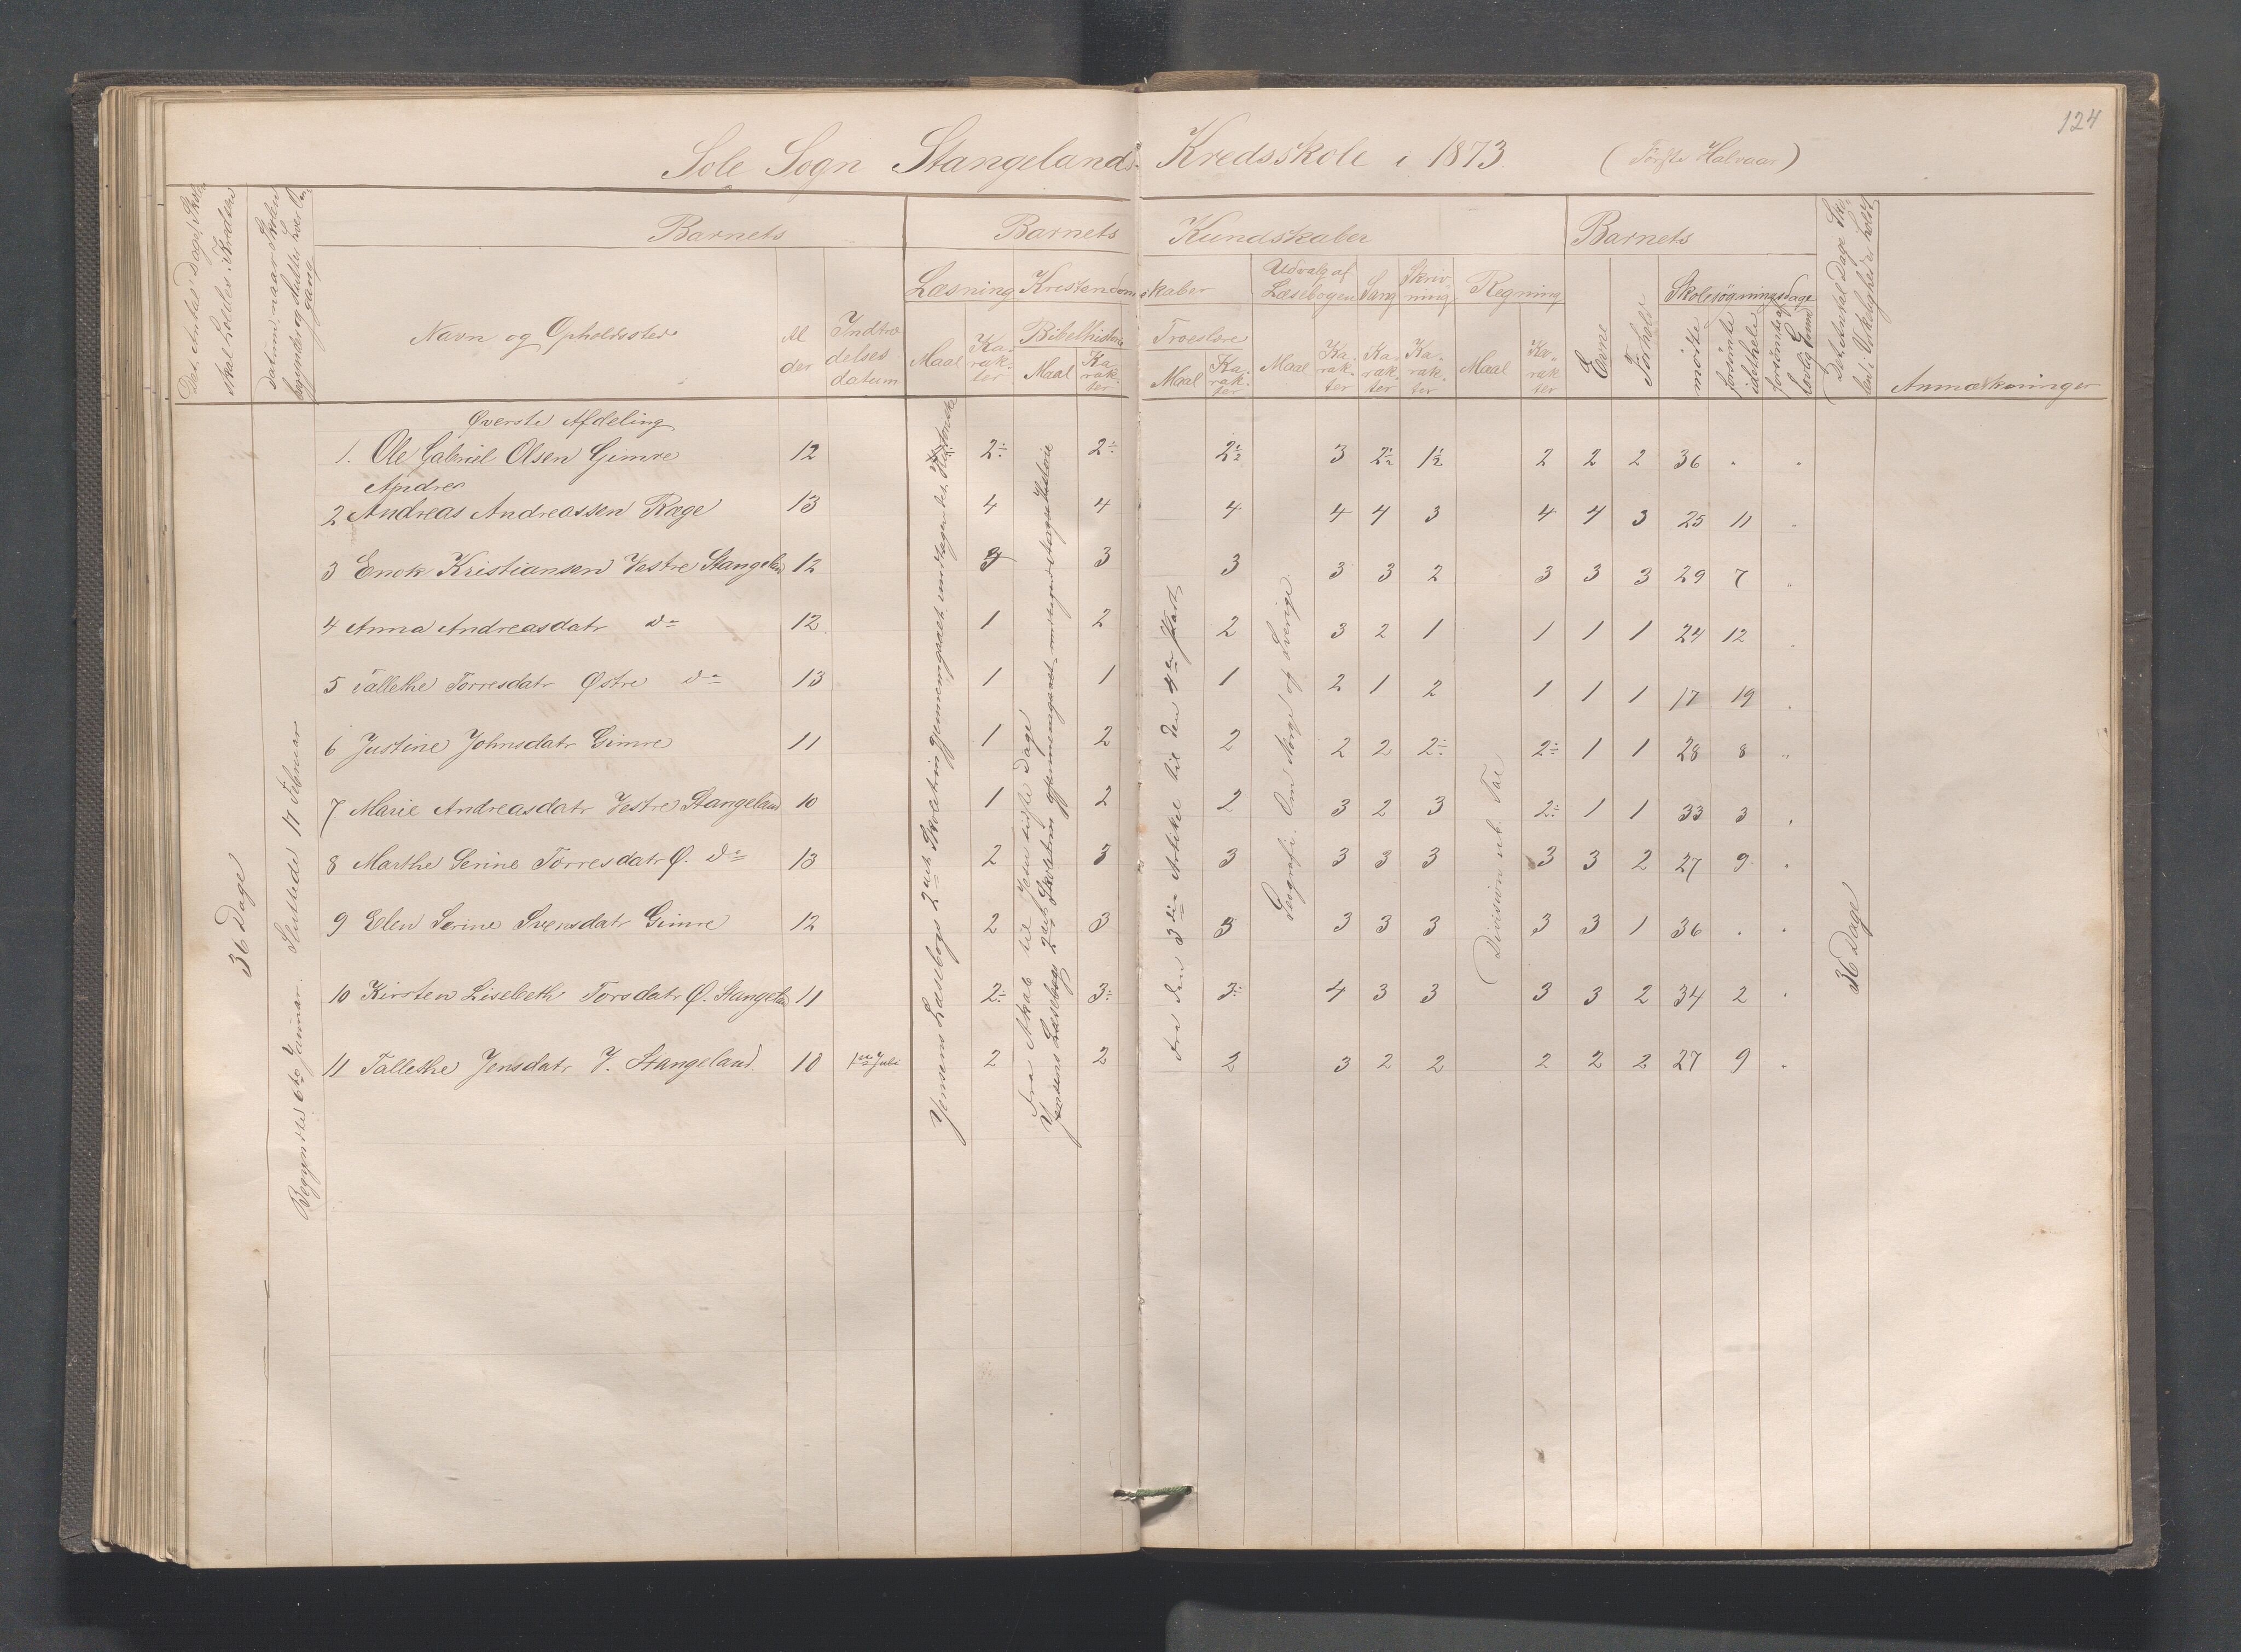 124
Sole Sogn Stangelands Kredsskole i 1873 (Første Halvaar)
Det Antal Dage Skole skal holdes i Kredsen
Datum, naar Skolen begynder og slutter hver Gang
Barnets
Navn og Opholdssted
Alder
Indtrædelsesdatum
Barnets Kundskaber
Læsning
Maal
Karakter
Kristendomskaber
Bibelhistorie
Maal
Karakter
Troeslære
Maal
Karakter
Udvalg af Læsebogen
Maal
Karakter
Sang
Karakter
Skrivning
Karakter
Regning
Maal
Karakter
Barnets
Evne
Forhold
Skolesøgningsdage
mødte
forsømte i det hele
forsømte af lovlig Grund
Det Antal Dage Skolen i Virkeligheden holdt
Anmærkninger
36 Dage
Begyndte 6te Januar. Sluttede 17 Februar
Øverste Afdeling
1. Ole Gabriel Olsen Gimre 12 2÷ 2÷ 2½ 3 2½ 1½ 2 2 2 36 . .
Andreas
2 Andreas Andreassen Ræge 13 4 4 4 4 4 3 4 4 3 25 11 .
3 Enok Kristiansen Vestre Stangeland 12 3 3 3 3 3 2 3 3 3 29 7 .
4 Anna Andreasdatr do 12 1 2 2 3 2 1 1 1 1 24 12 .
5 Tallethe Torresdatr Østre do 13 1 1 1 2 1 2 1 1 1 17 19 .
6 Justine Johnsdatr Gimre 11 1 2 2 2 2 2÷ 2÷ 1 1 28 8 .
7 Marie Andreasdatr Vestre Stangeland 10 1 2 2 3 2 3 2÷ 1 1 33 3 .
8 Marthe Serine Torresdatr Ø. do 13 2 3 3 3 3 3 3 3 2 27 9 .
9 Elen Serine Svensdatr Gimre 12 2 3 3 3 3 3 3 3 1 36 . .
10 Kirsten Lisebeth Torsdatr Ø. Stangeland 11 2÷ 3÷ 3÷ 4 3 3 3 3 2 34 2 .
11 Tallethe Jensdatr V. Stangeland 10 1ste Juli 2 2 2 3 2 2 2 2 2 27 9 .
Jensens Læsebogs 2det Skoletrin gjennemgaaet undtagen det
Fra Akab til Jesu sidste Dage
Jensens Læsebogs 2det Skoletrin gjennemgaaet
Fra den 3die Artikel til den 4de Part
Geografi. Om Norge og Sverige.
Division ub. Tal
36 Dage